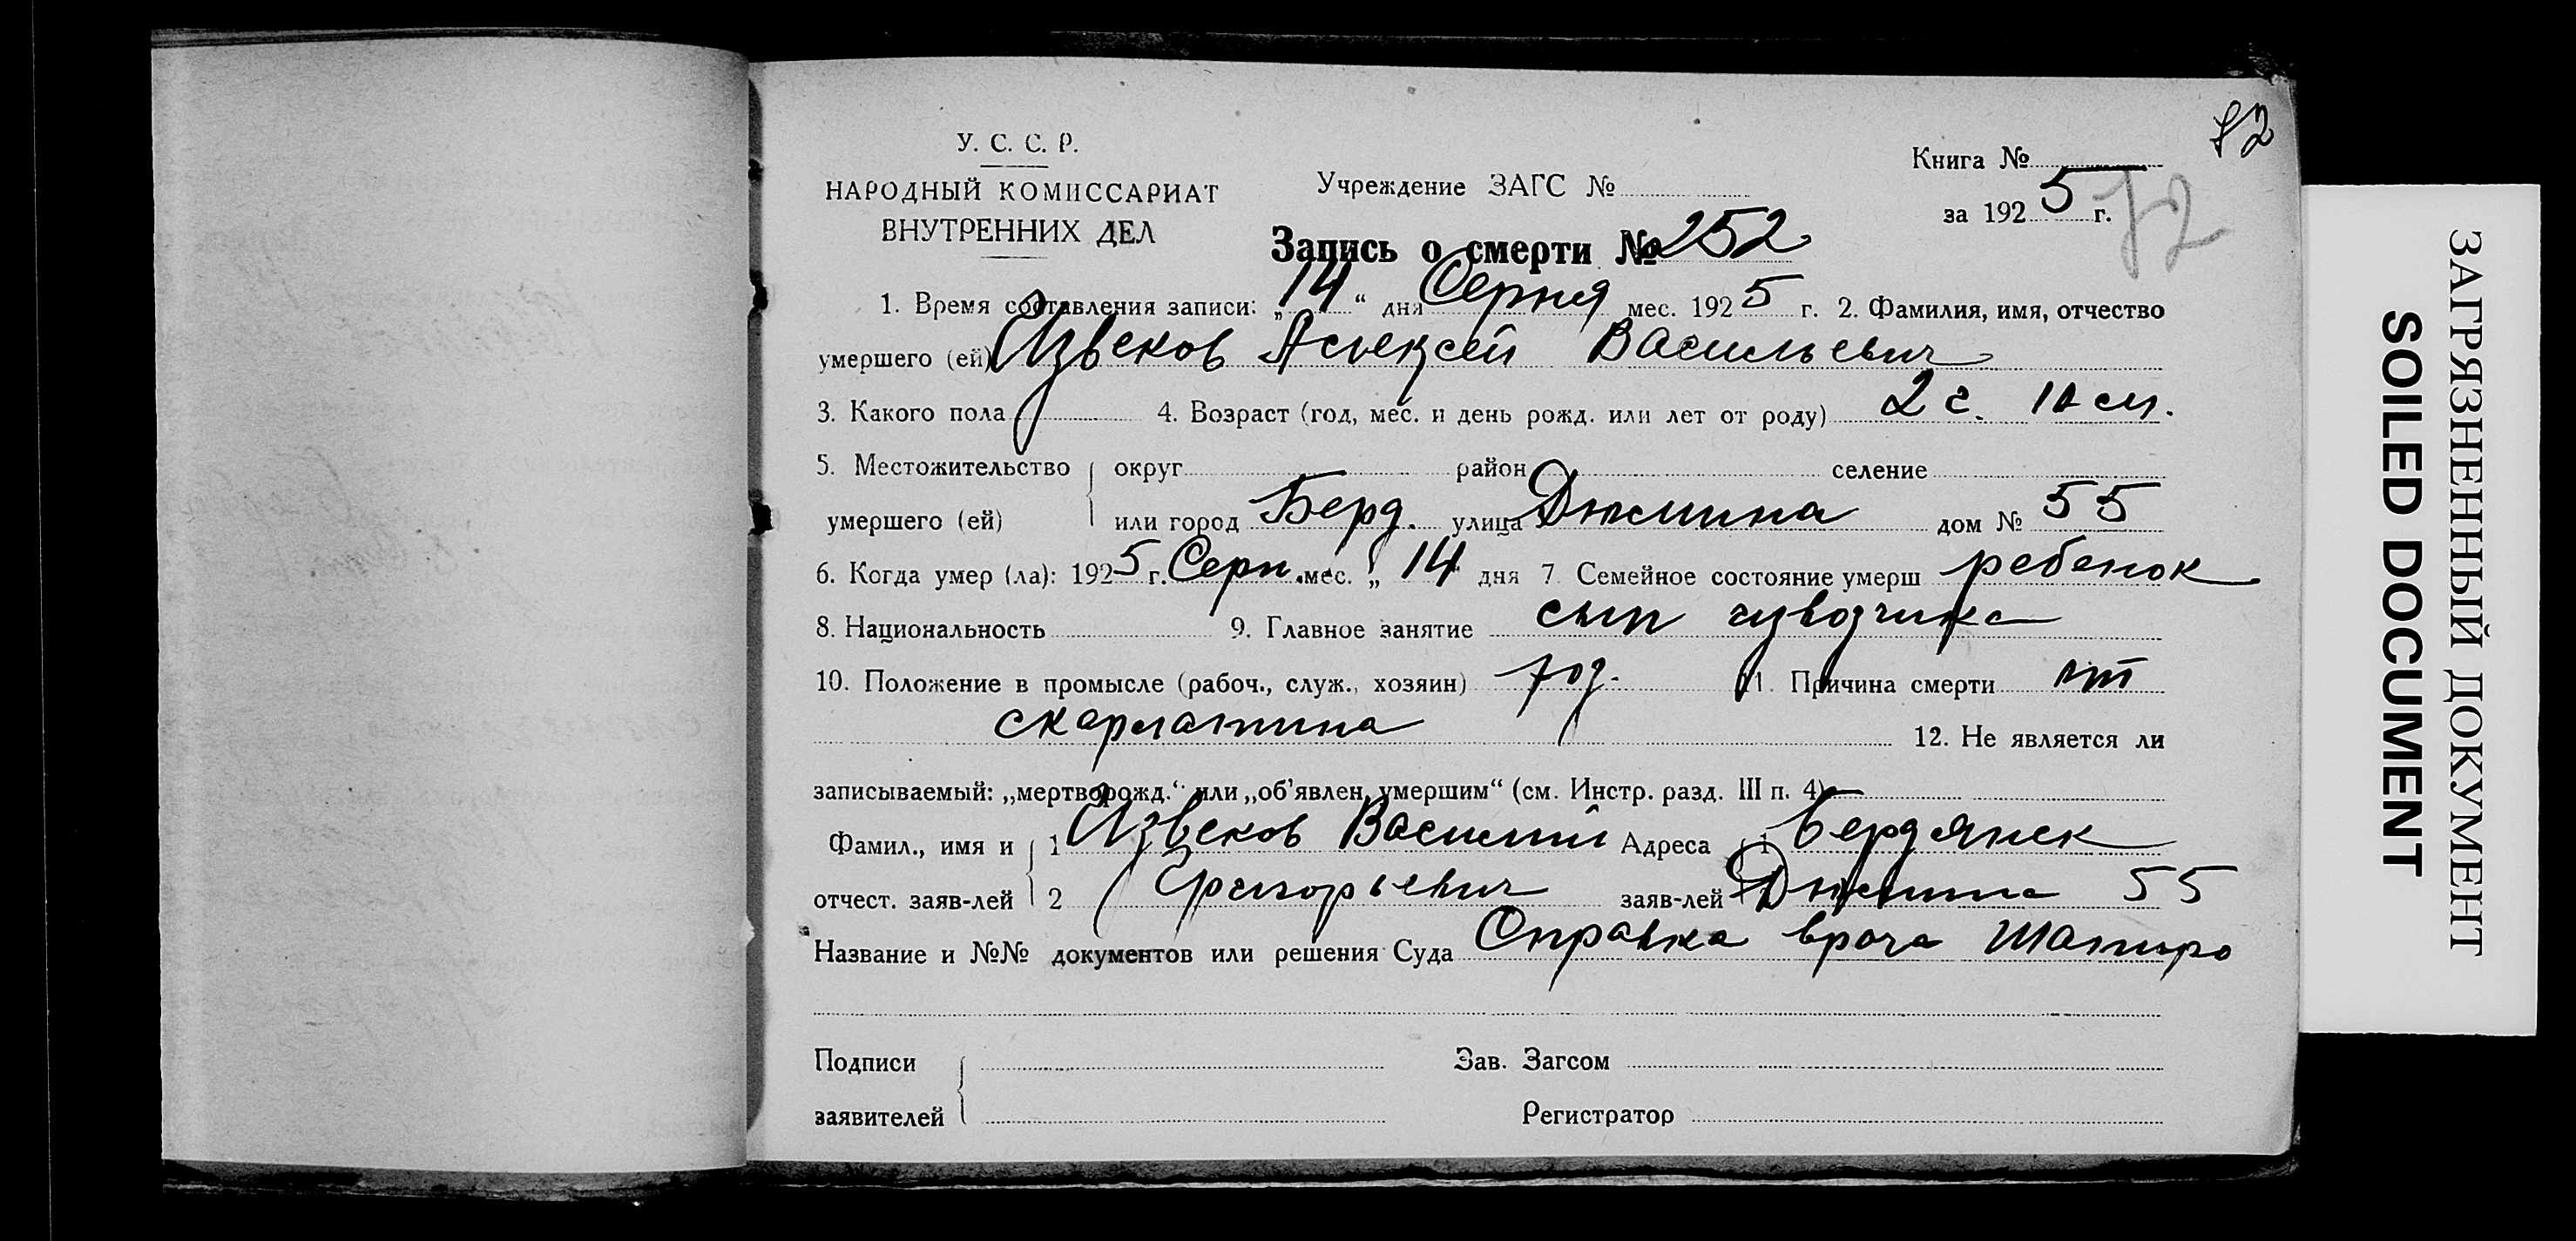 72
У. С. С. Р.
НАРОДНЫЙ КОМИССАРИАТ
ВНУТРЕННИХ ДЕЛ
Учреждение ЗАГС №
Книга №
за 1925 г.
72
Запись о смерти № 252
1. Время составления записи: „14“ дня Серпня мес. 1925 г. 2. Фамилия, имя, отчество
умершего (ей) Извеков Алексей Васильевич
3. Какого пола 4. Возраст (год, мес. и день рожд. или лет от роду) 2 г. 10 м.
5. Местожительство округ район селение
умершего (ей) или город Берд. улица Дюмина дом № 55
6. Когда умер (ла): 1925 г. Серп. мес. „14 дня 7. Семейное состояние умерш ребенок
8. Национальность 9. Главное занятие сын извозчика
10. Положение в промысле (рабоч., служ., хозяин) хоз. 11. Причина смерти от
скарлатина 12. Не является ли
записываемый: „мертворожд.“ или „об’явлен, умершим“ (см. Инстр. разд. III п. 4)
Фамил., имя и 1 Извеков Василий Адреса 1 Бердянск
отчест. заяв-лей 2 Григорьевич заяв-лей Дюмина 55
Название и №№ документов или решения Суда Справка врача Шапиро
Подписи Зав. Загсом
заявителей Регистратор
ЗАГРЯЗНЕННЫЙ ДОКУМЕНТ
SOILED DOCUMENT